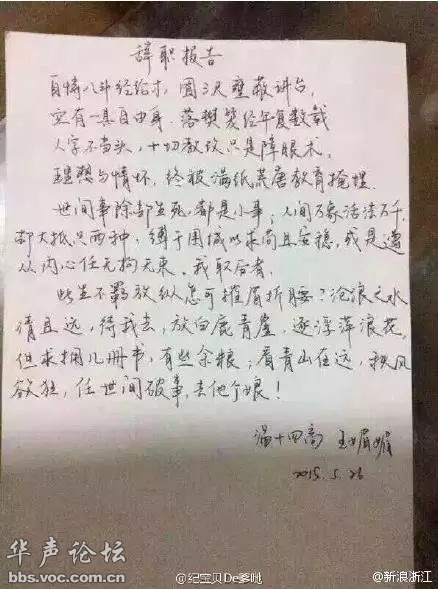 辞职报告
自恃八斗经纶才，囿三尺垩蔽讲台，
空有一具自由身，落樊笼经年复数载
人字不当头，十切教改只是障眼木，
理想与情怀，终被满纸荒唐教育掩埋
世间事除却生死，都是小事；人间万象活法万千，
却大抵只两种，缚于围城以求苟且安稳，或是遵
从内心任无拘无束，我取后者。
此生不羁放纵怎可摧眉折腰？沧浪之水
清且远，待我去，放白鹿青崖，逐浮萍浪花，
但求拥几册书，有些余粮；看青山在远，秋风
欲狂，任世间破事，去他个娘！
温十四高 王娟娟
2015.5.26
华声论坛
bbs.voc.com.cn
@纪宝贝De爹哋
@新浪浙江